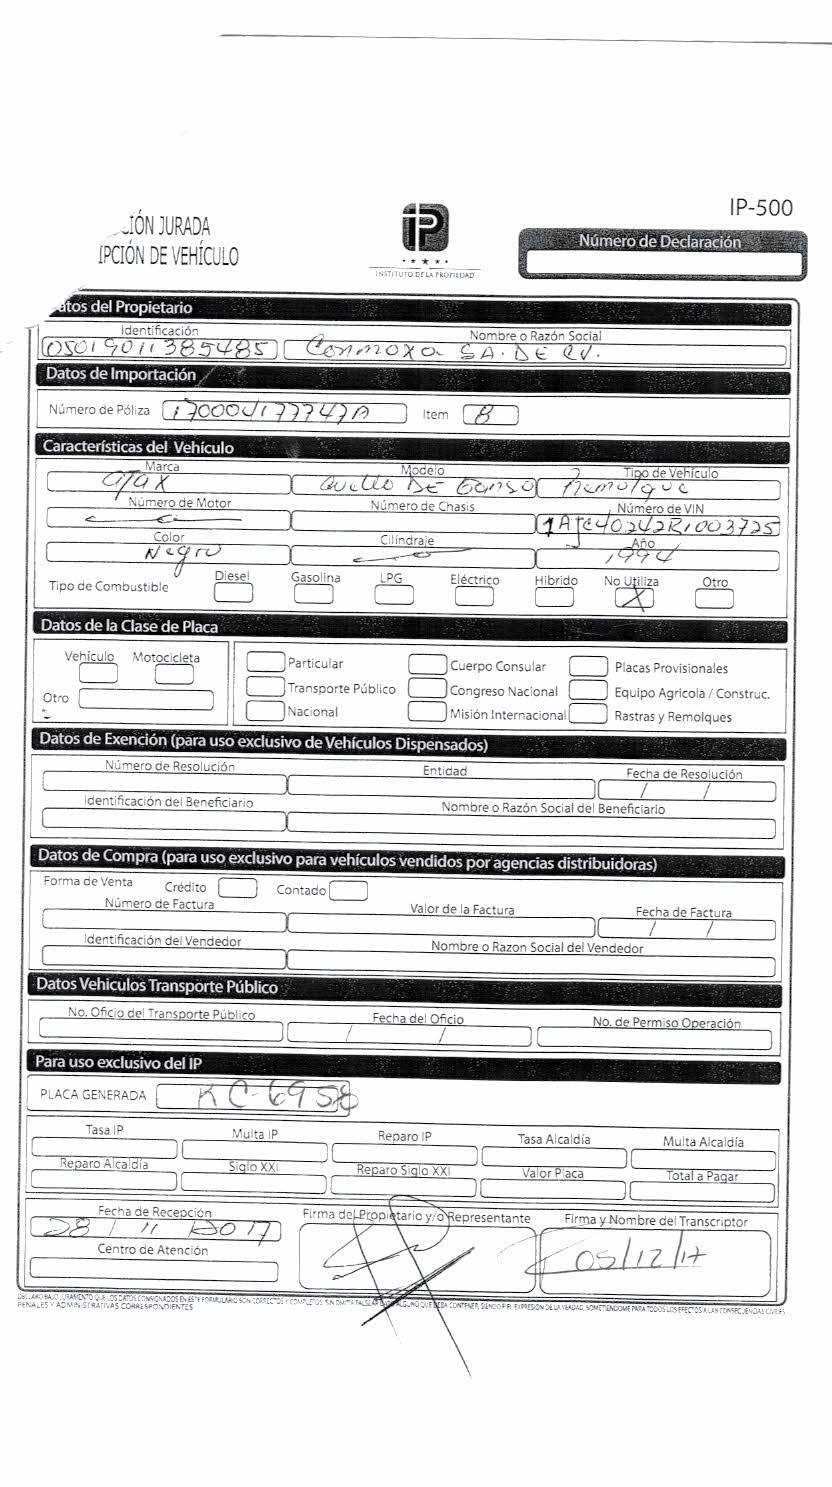 IP-500
IÓN JURADA
IPCIÓN DE VEHÍCULO
INSTITUTO DE LA PROPIEDAD
Número de Declaración
atos del Propietario
Identificación Nombre o Razón Social
05019011385485 Conmoxa S.A. DE C.V.
Datos de Importación
Número de Póliza 170004177747A Item B
Características del Vehículo
Marca Modelo Tipo de Vehículo
Cuello DE Ganso Remolque
Número de Motor Número de Chasis Número de VIN
1AJC40242R1003725
Color Cilindraje Año
Negro 1994
Tipo de Combustible Diesel Gasolina LPG Eléctrico Híbrido No Utiliza Otro
X
Datos de la Clase de Placa
Vehículo Motocicleta
Otro
Particular Cuerpo Consular Placas Provisionales
Transporte Público Congreso Nacional Equipo Agricola / Construc.
Nacional Misión Internacional Rastras y Remolques
Datos de Exención (para uso exclusivo de Vehículos Dispensados)
Número de Resolución Entidad Fecha de Resolución
/ /
Identificación del Beneficiario Nombre o Razón Social del Beneficiario
Datos de Compra (para uso exclusivo para vehículos vendidos por agencias distribuidoras)
Forma de Venta Crédito Contado
Número de Factura Valor de la Factura Fecha de Factura
/ /
Identificación del Vendedor Nombre o Razon Social del Vendedor
Datos Vehiculos Transporte Público
No. Oficio del Transporte Público Fecha del Oficio No. de Permiso Operación
/ /
Para uso exclusivo del IP
PLACA GENERADA KC-6958
Tasa IP Multa IP Reparo IP Tasa Alcaldía Multa Alcaldía
Reparo Alcaldía Siglo XXI Reparo Siglo XXI Valor Placa Total a Pagar
Fecha de Recepción Firma del Propietario y/o Representante Firma y Nombre del Transcriptor
28 / 11 / 2017 05/12/17
Centro de Atención
DECLARO BAJO JURAMENTO QUE LOS DATOS CONSIGNADOS EN ESTE FORMULARIO SON CORRECTOS Y COMPLETOS, SIN OMITIR FALSEAR DATO ALGUNO QUE DEBA CONTENER, SIENDO FIEL EXPRESION DE LA VERDAD, SOMETIENDOME PARA TODOS LOS EFECTOS A LAS CONSECUENCIAS CIVILES
PENALES Y ADMINISTRATIVAS CORRESPONDIENTES